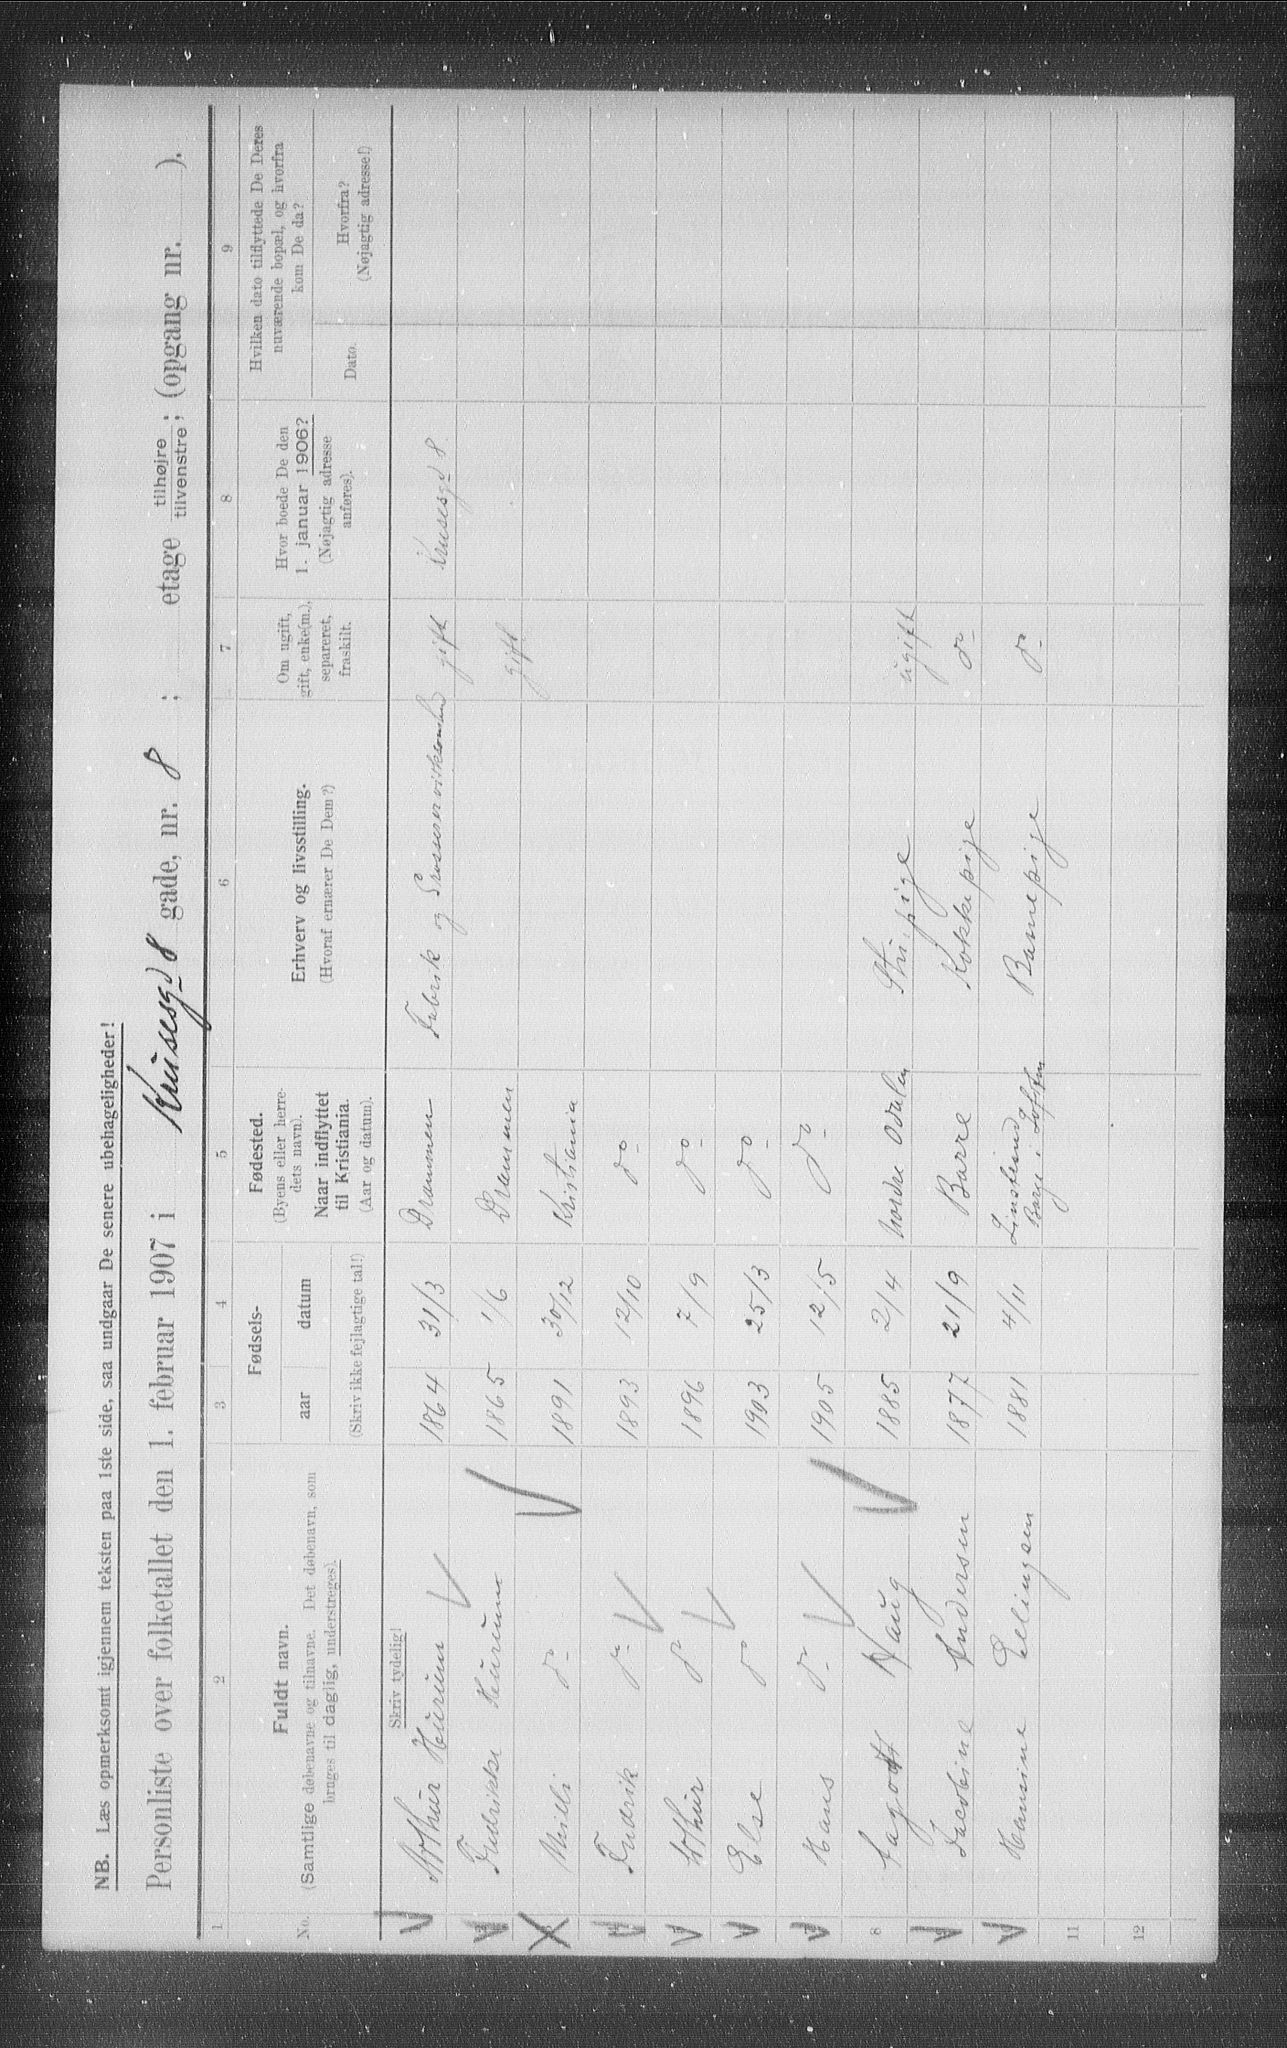 NB. Læs opmerksomt igjennem teksten paa 1ste side, saa undgaar De senere ubehageligheder!
Personliste over folketallet den 1. februar 1907 i Krusesgd 8 gade, nr. 8 ; etage tilhøjre tilvenstre ; (opgang nr. ).
1 2 3 4 5 6 7 8 9
No. Fuldt navn. (Samtlige døbenavne og tilnavne. Det døbenavn, som bruges til daglig, understreges). Skriv tydelig!
Fødsels- aar datum (Skriv ikke fejlagtige tal!)
Fødested. (Byens eller herredets navn). Naar indflyttet til Kristiania. (Aar og datum).
Erhverv og livsstilling. (Hvoraf ernærer De Dem?)
Om ugift, gift, enke(m.), separeret, fraskilt.
Hvor boede De den 1. januar 1906? (Nøjagtig adresse anføres).
Hvilken dato tilflyttede De Deres nuværende bopæl, og hvorfra kom De da? Dato. Hvorfra? (Nøjagtig adresse!)
Arthur Hurum 1864 31/3 Drammen Fabrik og gift Krusesgd 8
Fredrikke Hurum 1865 1/6 Drammen gift
Milli do 1891 30/12 Kristiania
Fredrik do 1893 12/10 do
Arthur do 1896 7/9 do
Else do 1903 25/3 do
Hans do 1905 12/5 do
8 Haug 1885 2/4 Nordre Odalen pige ugift
Jacobine Andersen 1877 21/9 Borre Kokkepige do
Hansine Ellingsen 1881 4/11 Barnepige do
11
12